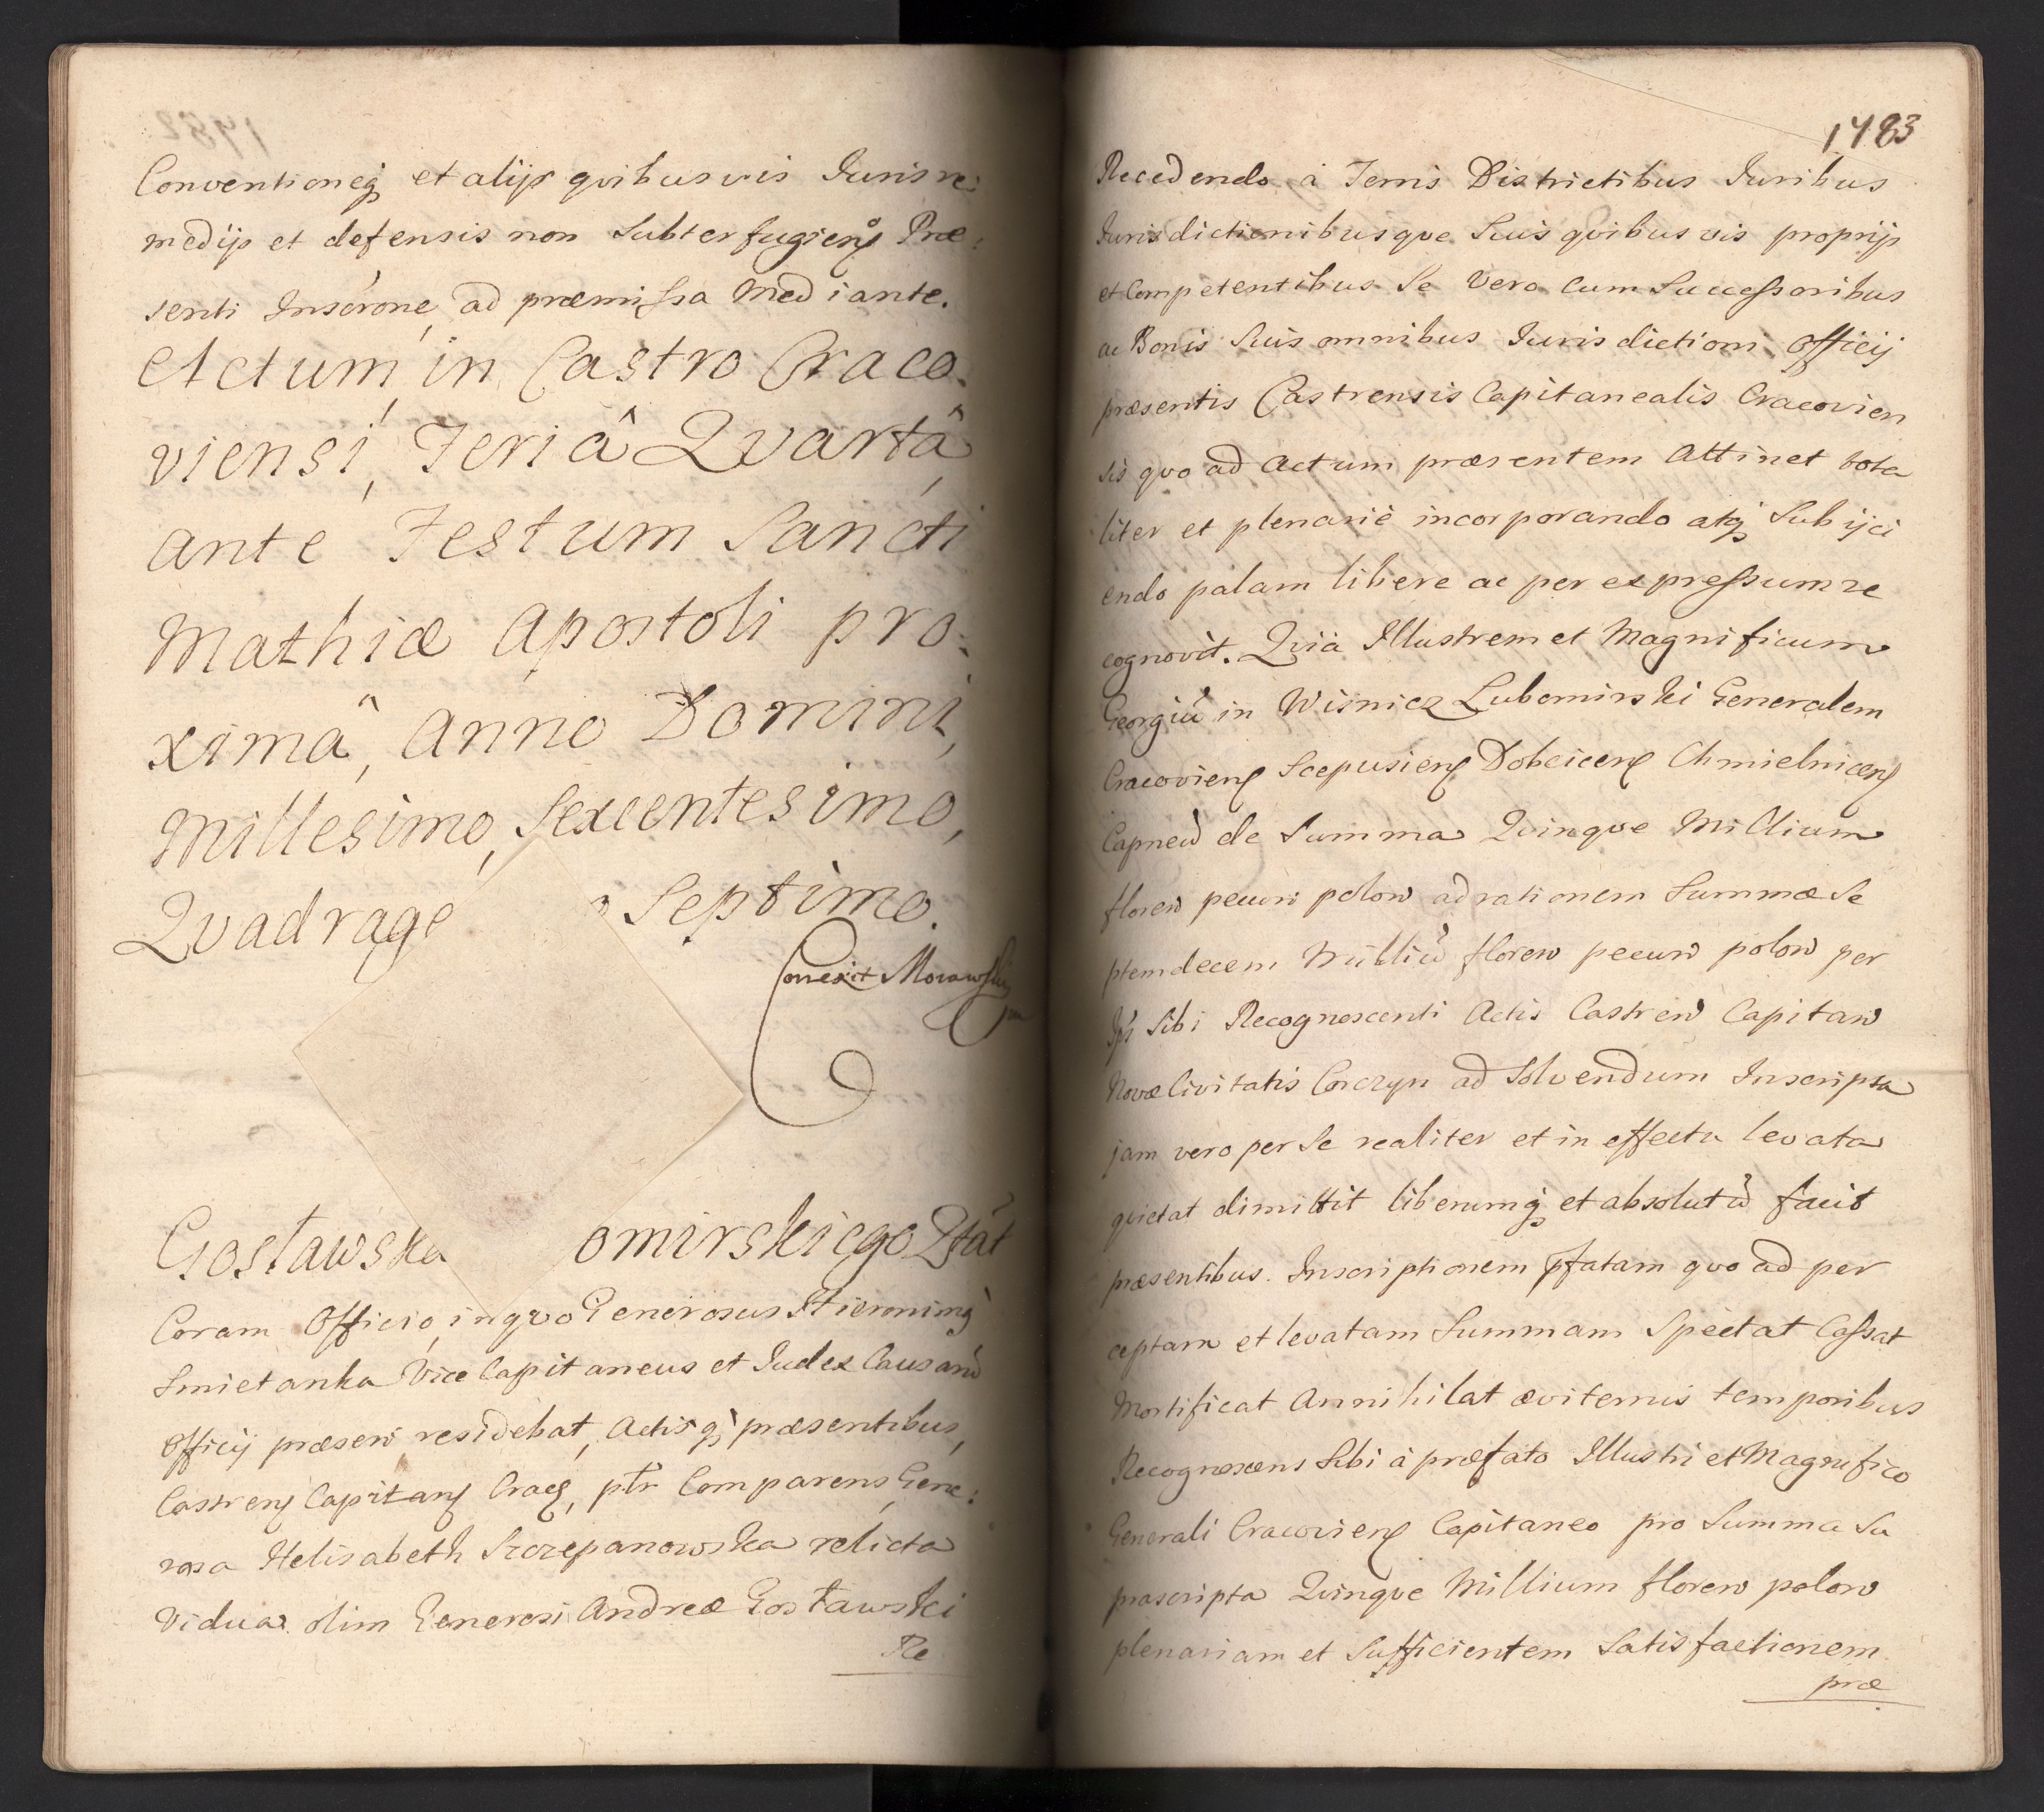 Conventioneq́ et alijs qvibusvis Juris re:
medijs et defensis non Subterfugiens Præ:
senti Inscrōne ad præmissa Mediante.
Actum in Castro Craco:
viensi, Feriâ Qvartâ
ante Festum Sancti
Mathiæ Apostoli pro:
ximâ, Anno Domini,
Millesimo, Sexcentesimo,
Qvadrage o Septimo.
Correxit Morawski
Gosławska omirskiego Qtát
Coram Officio, in qvo Generosus Hieronimq
Smietanka Vice Capitaneus et Judex Causarū
Officij præsen residebat, Actisq́ præsentibus,
Castren Capitan Crac, ptr Comparens Gene:
rosa Helisabeth Szczepanowska relicta
Vidua olim Generosi Andreæ Gosławski
Re
1483
Recedendo à Terris Districtibus Juribus
Jurisdictionibusqve Suis qvibusvis proprijs
et Competentibus Se Vero Cum Successoribus
ac Bonis Suis omnibus Jurisdictioni Officij
præsentis Castrensis Capitanealis Cracovien
sis qvo ad Actum præsentem Attinet tota
liter et plenariè incorporando atq́ Subijci
endo palam libere ac per expressum re
cognovit. Qvia Illustrem et Magnificum
Georgiū in Wisnicz Lubomirski Generalem
Cracovien Scepusien Dobcicen Chmielnicen
Capneū de Summa Qvinqve Millium
floren pecun polon ad rationem Summæ Se
ptemdecem Milliū floren pecun polon per
Ips Sibi Recognoscenti Actis Castren Capitan
Novæ Civitatis Corczyn ad Solvendum Inscripta
jam vero per Se realiter et in effectu levata
qvietat dimittit liberumq́ et absolutū facit
præsentibus. Inscriptionem pfatam qvo ad per
ceptam et levatam Summam Spectat Cassat
Mortificat Annihilat æviternis temporibus
Recognoscens Sibi à præfato Illustri et Magnifico
Generali Cracovien Capitaneo pro Summa Su
prascripta Qvinqve Millium floren polon
plenariam et Sufficientem Satisfactionem
præ